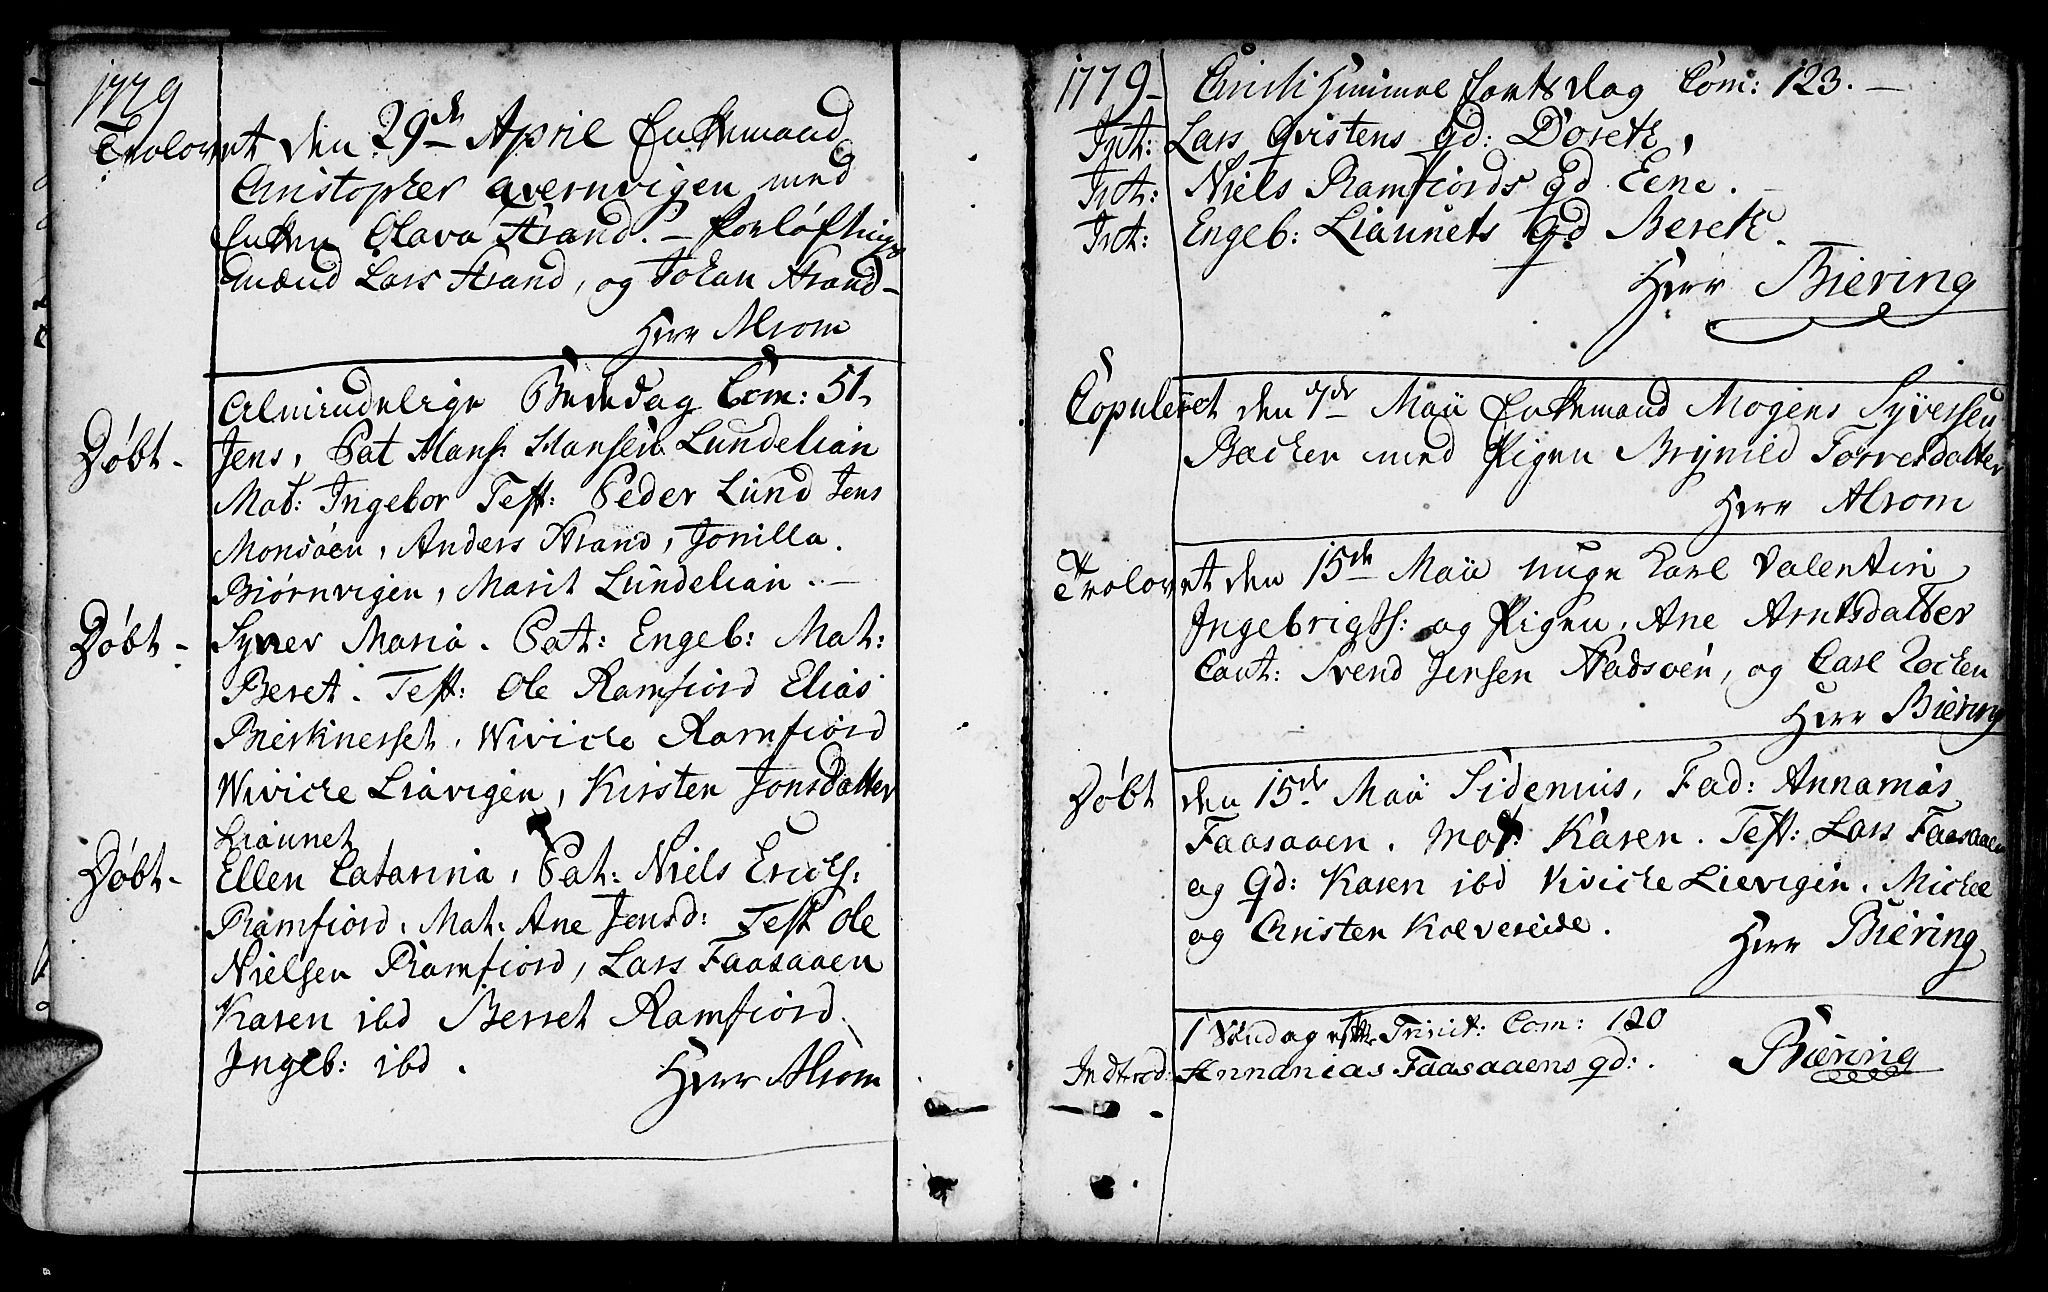 1779
Trolovet den 29de April Enkemand
Christopher Qvernvigen med
Enken Olava Strand. - forløftnings
mænd Lars Strand, og Johan Strand -
Herr Alsom
Almindelige Bededag Com: 51.
Døbt - Jens, Pat Hans Hansen Lundelian
Mat: Ingebor Test: Peder Lund Jens
Monsøen, Anders Strand, Jonilla
Biørnvigen, Marit Lundelian. -
Døbt - Syver Maria. Pat: Engeb: Mat:
Beret. Test: Ole Ramfiord Elias
Bierknesset, Wiviche Ramfiord
Wiviche Liavigen, Kirsten Jonsdatter
Liaunet
Døbt - Ellen Catarina, Pat: Niels Erichs:
Ramfiord, Mat: Ane Jensd: Test Ole
Nielsen Ramfiord, Lars Faasaaen
Karen ibd Berret Ramfiord.
Ingeb: ibd.
Herr Alsom
1779 - Christi Himmelfartsdag Com: 123. -
Int: Lars Qvistens qd: Doreth,
Int: Niels Ramfiords qd Lene. -
Int: Engeb: Liaunets qd Bereth.
Herr Biering
Copuleret den 7de Maii Enkemand Mogens Syversen
Backen med Pigen Brynild Torresdatter
Herr Alsom
Trolovet den 15de Maii unge Karl Valentin
Ingebrigts: og Pigen, Ane Arntsdatter
Caut: Svend Jensen Stadsøen, og Carl Zechen
Herr Biering
Døbt den 15de Maii Sidenius, Fad: Annanias
Faasaaen. Mot: Karen. Test: Lars Faasaaen
og qd: Karen ibd Wiviche Lievigen, Michel
og Christen Kolvereide.
Herr Biering
1 Søndag efter Trinit: Com: 120
Indtred: Annanias Faasaaens qd:. Biering